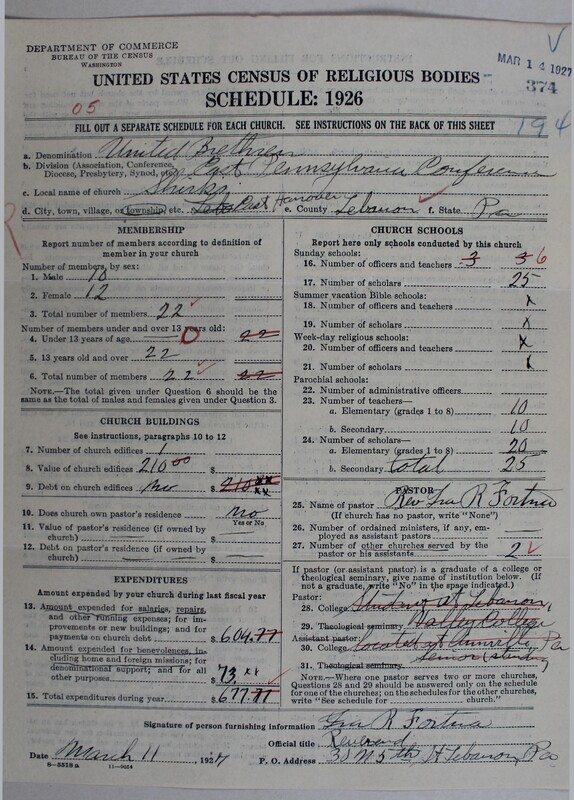 DEPARTMENT OF COMMERCE
BUREAU OF THE CENSUS
WASHINGTON
MAR 14 1927
374
UNITED STATES CENSUS OF RELIGIOUS BODIES
SCHEDULE: 1926
05
194
FILL OUT A SEPARATE SCHEDULE FOR EACH CHURCH. SEE INSTRUCTIONS ON THE BACK OF THIS SHEET
a. Denomination United Brethren
b. Division (Association, Conference, Diocese, Presbytery, Synod, etc.) East Pennsylvania Conference
c. Local name of church Shirks
d. City, town, village, or township, etc. East Hanover e. County Lebanon f. State Pa
MEMBERSHIP
Report number of members according to definition of member in your church
Number of members, by sex:
1. Male 10
2. Female 12
3. Total number of members 22
Number of members under and over 13 years old:
4. Under 13 years of age 0 22
5. 13 years old and over 22
6. Total number of members 22 22
NOTE.—The total given under Question 6 should be the same as the total of males and females given under Question 3.
CHURCH BUILDINGS
See instructions, paragraphs 10 to 12
7. Number of church edifices 1
8. Value of church edifices 210 00 $
9. Debt on church edifices $ 210 xx
10. Does church own pastor's residence? No
Yes or No
11. Value of pastor's residence (if owned by church) $
12. Debt on pastor's residence (if owned by church) $
EXPENDITURES
Amount expended by your church during last fiscal year
13. Amount expended for salaries, repairs, and other running expenses; for improvements or new buildings; and for payments on church debt $ 604.77
14. Amount expended for benevolences, including home and foreign missions; for denominational support; and for all other purposes $ 73.xx
15. Total expenditures during year $ 677.77
CHURCH SCHOOLS
Report here only schools conducted by this church
Sunday schools:
16. Number of officers and teachers 3 3 6
17. Number of scholars 25
Summer vacation Bible schools:
18. Number of officers and teachers x
19. Number of scholars x
Week-day religious schools:
20. Number of officers and teachers x
21. Number of scholars x
Parochial schools:
22. Number of administrative officers
23. Number of teachers—
a. Elementary (grades 1 to 8) 10
b. Secondary 10
24. Number of scholars—
a. Elementary (grades 1 to 8) 20
b. Secondary total 25
PASTOR
25. Name of pastor Rev Ira R Fortna
(If church has no pastor, write "None")
26. Number of ordained ministers, if any, employed as assistant pastors
27. Number of other churches served by the pastor or his assistants 2
If pastor (or assistant pastor) is a graduate of a college or theological seminary, give name of institution below. (If not a graduate, write "No" in the space indicated.)
Pastor:
28. College Student at Lebanon,
29. Theological seminary Valley College
Assistant pastor:
30. College located at Annville, Pa
31. Theological seminary Senior (student)
NOTE.—Where one pastor serves two or more churches, Questions 28 and 29 should be answered only on the schedule for one of the churches; on the schedules for the other churches, write "See schedule for church."
Signature of person furnishing information Ira R Fortna
Official title Reverend
Date March 11, 1927 P. O. Address 38 N 5th St Lebanon, Pa
8—5518 a 11—9684